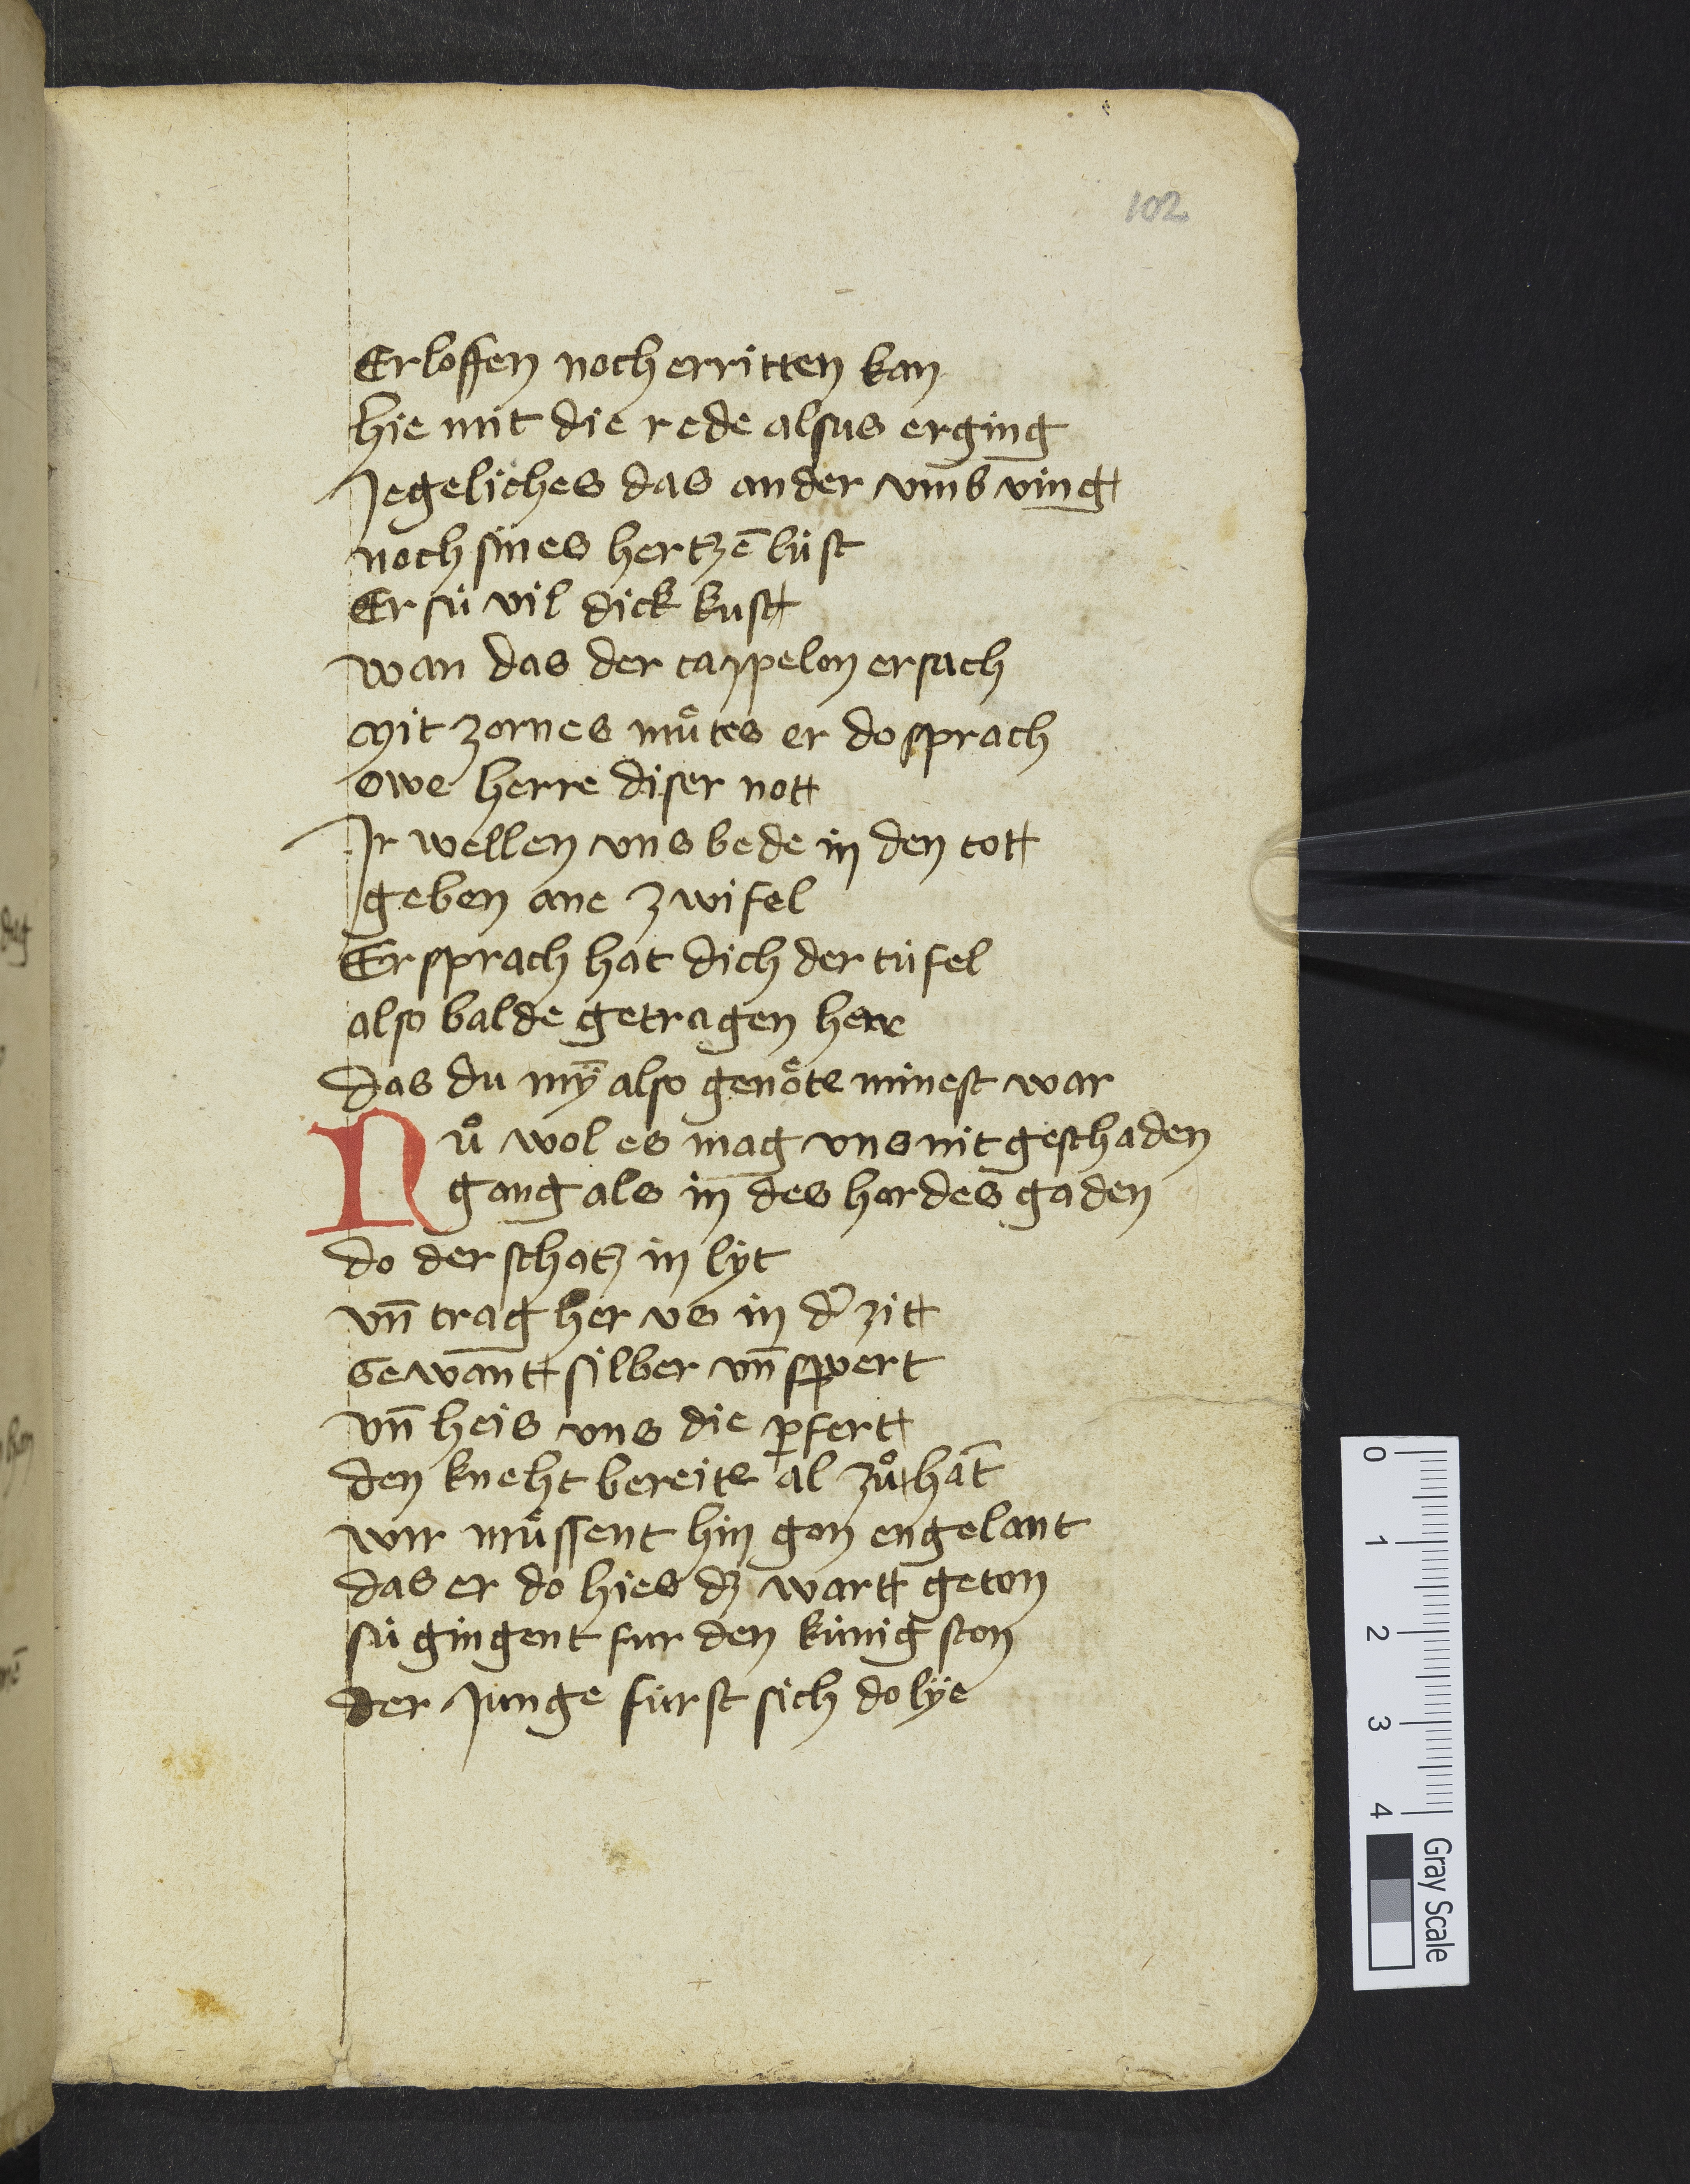 102
Erloffen noch erritten kan
hie mit die rede alsus erging
Jegeliches das ander vmb ving
noch sines hertzē lúst
Er sú vil dick kust
wan das der cappelon ersach
Mit zornes muͤtes er do sprach
owe herre diser nott
Jr wellen vns bede in den tott
geben ane zwifel
Er sprach hat dich der túfel
also balde getragen here
das du mȳ also genoͤte minest war
Nuͦ wol es mag vns nit geschaden
gang als in des hordes gaden
do der schatz in lyt
vn̄ trag her vs in dˀ zitt
Gewantt silber vn̄ swert
vn̄ heis vns die pfertt
den kneht bereite al zuͦ hāt
wir muͤssent hin gon engelant
das er do hies dz wartt geton
sú gingent fur den kúnig ston
der junge fúrst sich do lye
0
1
2
3
4
Gray Scale